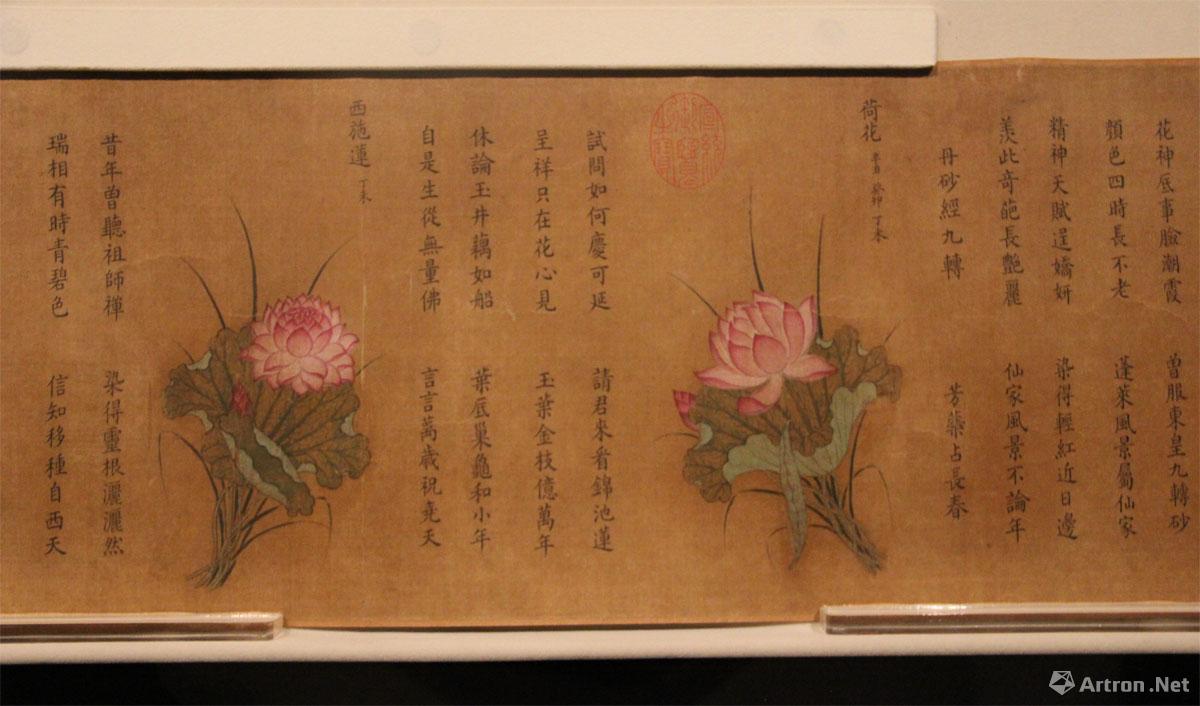 花神底事臉潮霞 曾服東皇九轉砂
顏色四時長不老 蓬萊風景屬仙家
精神天賦逞嬌妍 染得輕紅近日邊
羨此奇葩長艷麗 仙家風景不論年
丹砂經九轉 芳藥占長春
荷花 辛丑 癸卯 丁未
試問如何慶可延 請君來看錦池蓮
呈祥只在花心見 玉葉金枝億萬年
休論玉井藕如船 葉底巢龜和小年
自是生從無量佛 言言萬歲祝堯天
西施蓮 丁未
昔年曾聽祖師禪 染得靈根灑灑然
瑞相有時青碧色 信知移種自西天
Artron.Net